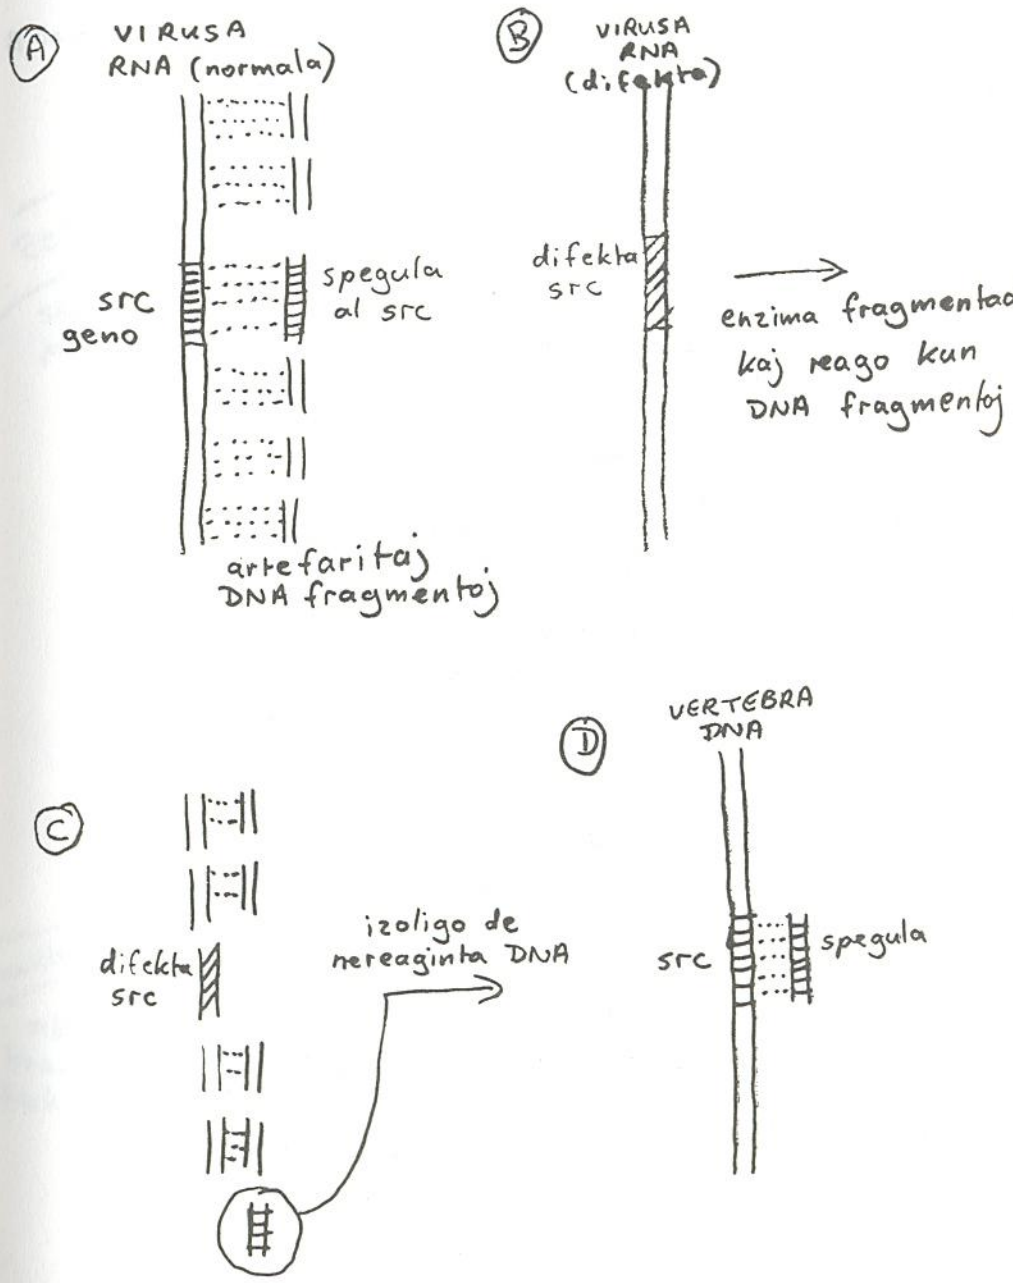 A
VIRUSA
RNA (normala)
src
geno
spegula
al src
artefaritaj
DNA fragmentoj
B
VIRUSA
RNA
(difekta)
difekta
src
enzima fragmentad
kaj reago kun
DNA fragmentoj
C
difekta
src
izoligo de
nereaginta DNA
D
VERTEBRA
DNA
src
spegula